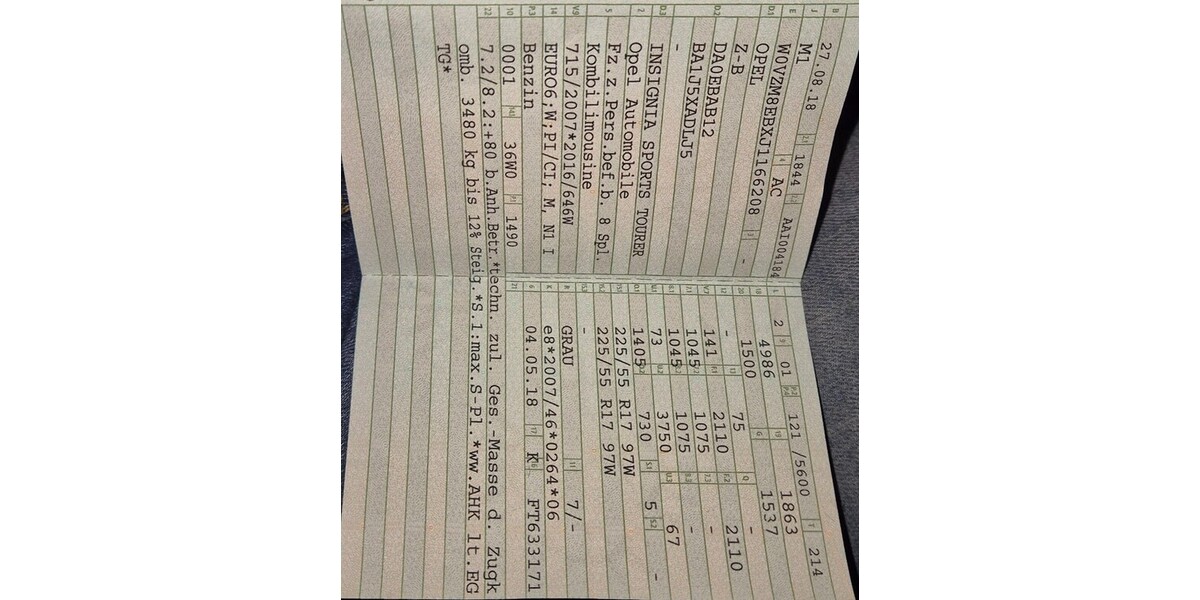 B 27.08.18 2.1 1844 2.2 AAI004184
J M1 4 AC
E W0VZM8EBXJ1166208 3 -
D.1 OPEL
Z-B
D.2 DA0EBAB12
BA1J5XADLJ5
-
D.3 INSIGNIA SPORTS TOURER
2 Opel Automobile
5 Fz.z.Pers.bef.b. 8 Spl.
Kombilimousine
V.9 715/2007*2016/646W
14 EURO6;W;PI/CI; M, N1 I
P.3 Benzin
10 0001 14.1 36W0 P.1 1490
L 2 9 01 P.2 P.4 121 /5600 T 214
18 4986 19 1863
20 1500 G 1537
12 - 13 75 Q -
V.7 141 F.1 2110 F.2 2110
7.1 1045 7.2 1075 7.3 -
8.1 1045 8.2 1075 8.3 -
U.1 73 U.2 3750 U.3 67
O.1 1405 O.2 730 S.1 5 S.2 -
15.1 225/55 R17 97W
15.2 225/55 R17 97W
15.3 -
R GRAU 11 7/-
K e8*2007/46*0264*06
6 04.05.18 17 K 16 FT633171
21
22 7.2/8.2:+80 b.Anh.Betr.*techn. zul. Ges.-Masse d. Zugk
omb. 3480 kg bis 12% Steig.*S.1:max.S-Pl.*ww.AHK lt.EG
TG*